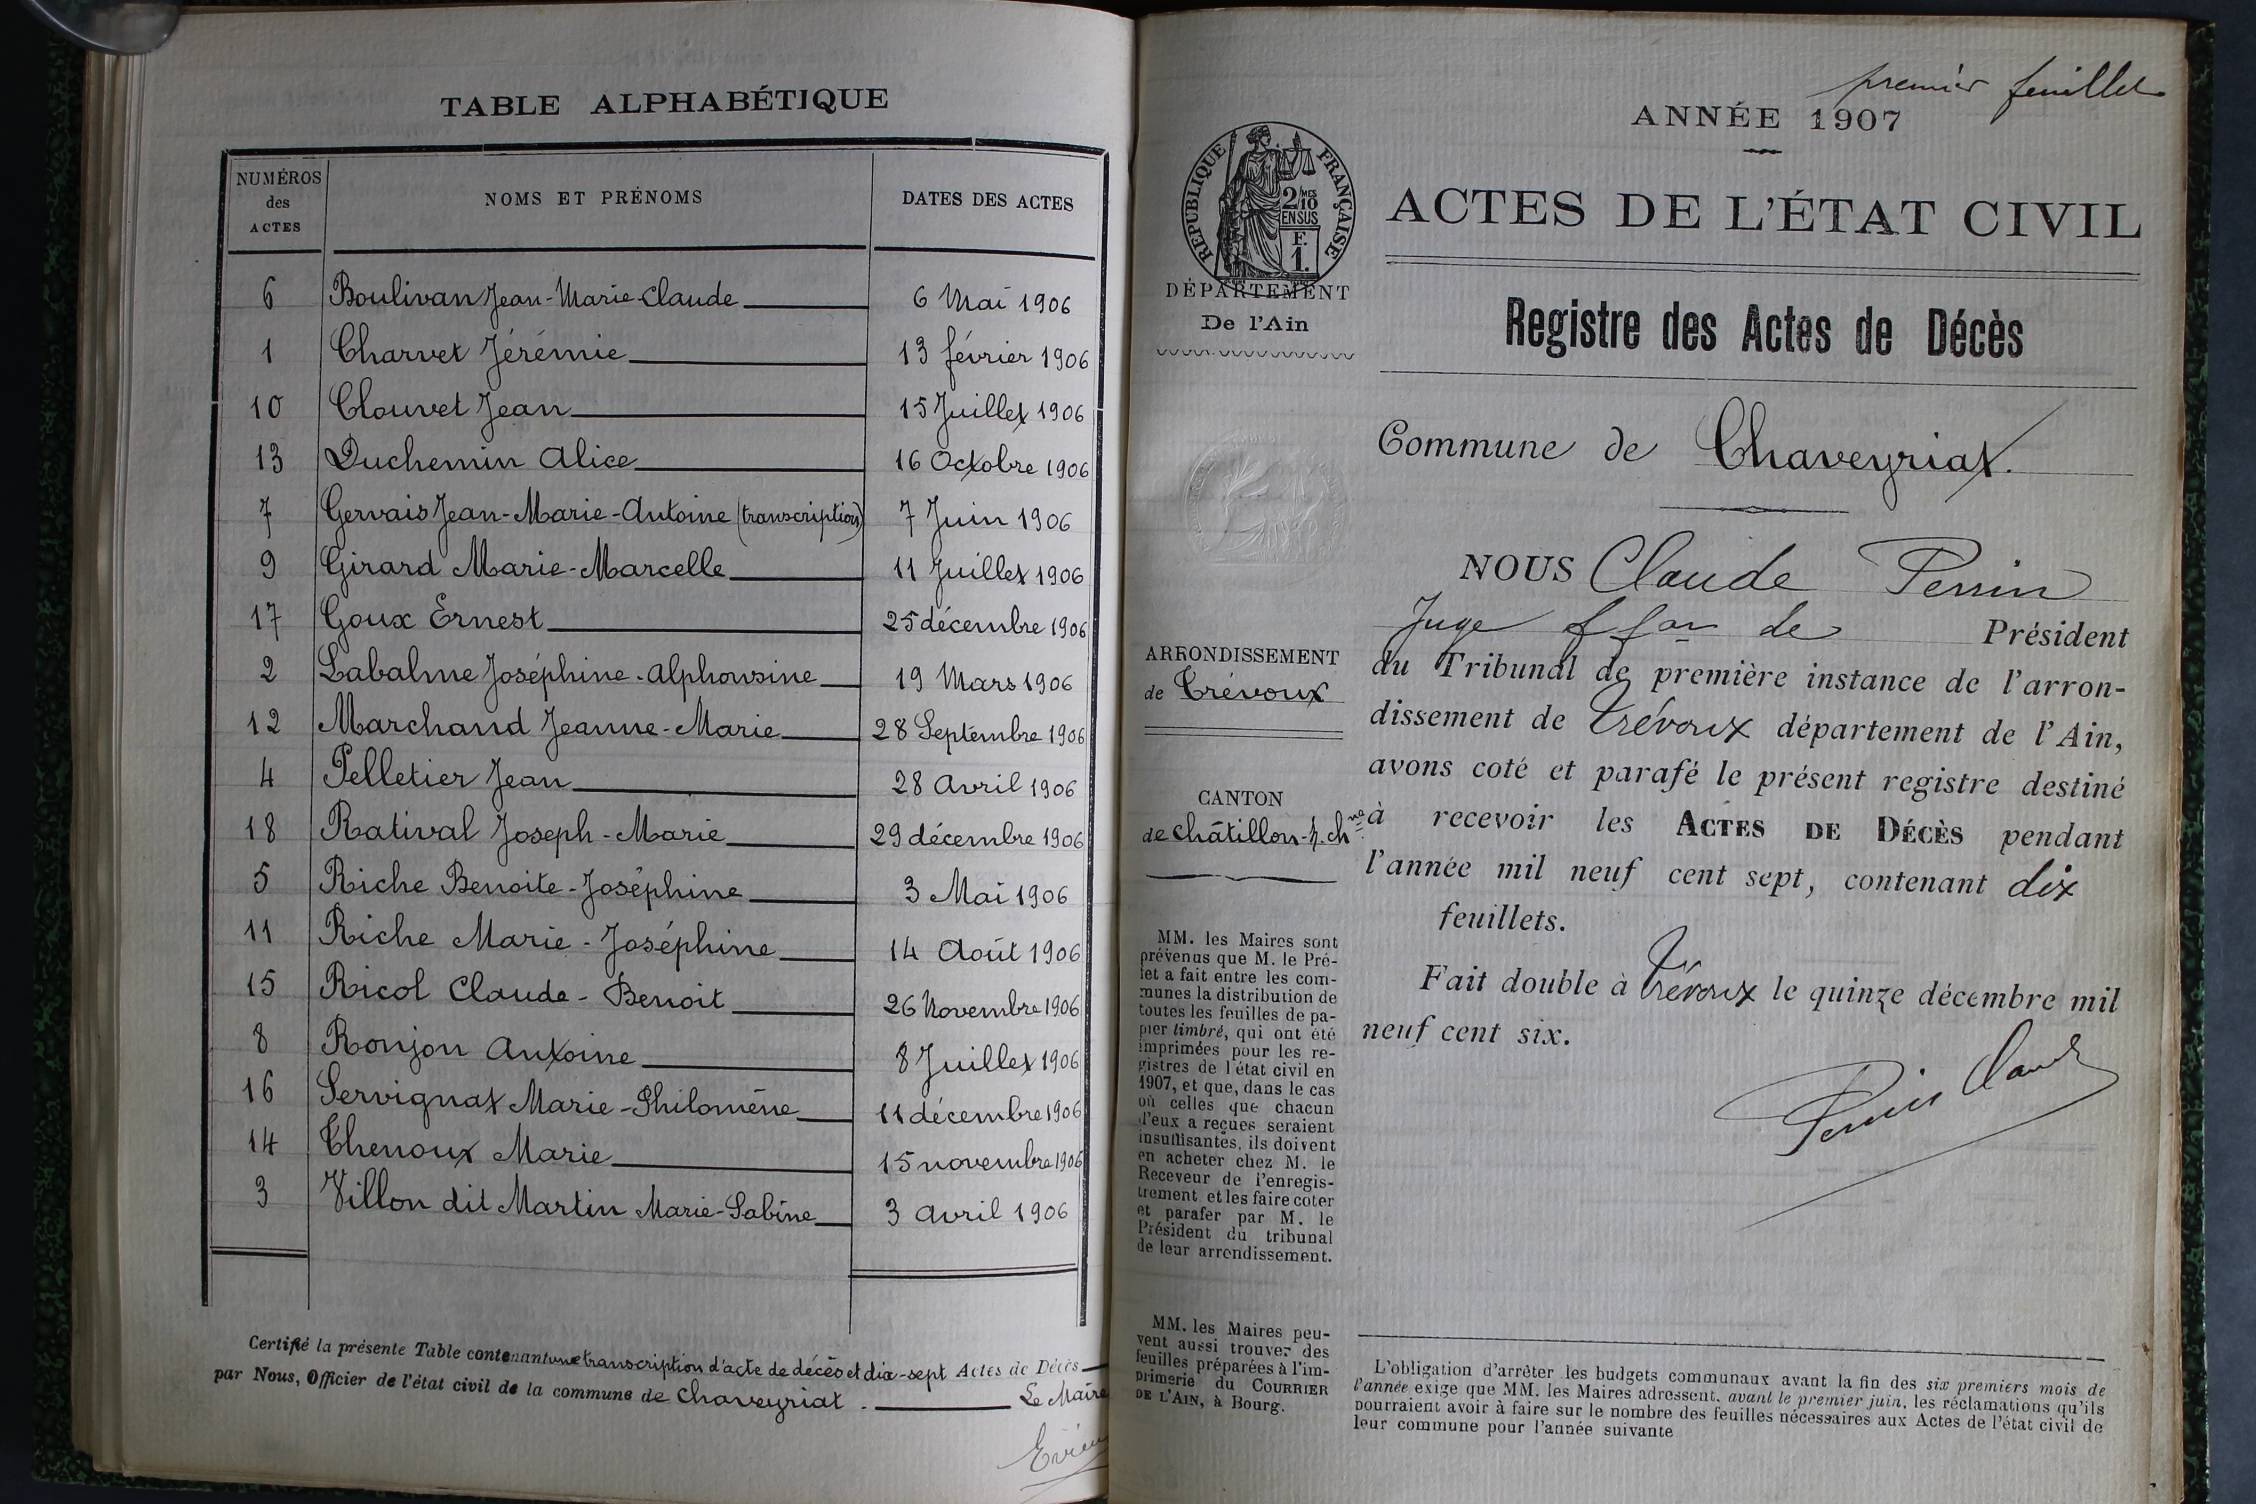 TABLE ALPHABÉTIQUE
NUMÉROS des ACTES NOMS ET PRÉNOMS DATES DES ACTES
6 Boulivan Jean-Marie-Claude 6 Mai 1906
1 Charvet Jérémie 13 février 1906
10 Clouvet Jean 15 Juillet 1906
13 Duchemin Alice 16 Octobre 1906
7 Gervais Jean-Marie-Antoine (transcription) 7 Juin 1906
9 Girard Marie-Marcelle 11 Juillet 1906
17 Goux Ernest 25 décembre 1906
2 Labalme Joséphine-Alphonsine 19 Mars 1906
12 Marchand Jeanne-Marie 28 Septembre 1906
4 Pelletier Jean 28 Avril 1906
18 Ratival Joseph-Marie 29 décembre 1906
5 Riche Benoite-Joséphine 3 Mai 1906
11 Riche Marie-Joséphine 14 Août 1906
15 Ricol Claude-Benoit 26 Novembre 1906
8 Ronjon Antoine 8 Juillet 1906
16 Servignat Marie-Philomène 11 décembre 1906
14 Thenoux Marie 15 novembre 1906
3 Villon dit Martin Marie-Sabine 3 Avril 1906
Certifié la présente Table contenant une transcription d'acte de décès et dix-sept Actes de Décès
par Nous, Officier de l'état civil de la commune de Chaveyriat.
Le Maire
premier feuillet
ANNÉE 1907
RÉPUBLIQUE FRANÇAISE
2/10 MES
EN SUS
F.
1.
DÉPARTEMENT
De l'Ain
ARRONDISSEMENT
de Trévoux
CANTON
de Châtillon-s.-ch.ne
MM. les Maires sont
prévenus que M. le Pré-
fet a fait entre les com-
munes la distribution de
toutes les feuilles de pa-
pier timbré, qui ont été
imprimées pour les re-
gistres de l'état civil en
1907, et que, dans le cas
où celles que chacun
d'eux a reçues seraient
insuffisantes, ils doivent
en acheter chez M. le
Receveur de l'enregis-
trement et les faire coter
et parafer par M. le
Président du tribunal
de leur arrondissement.
MM. les Maires peu-
vent aussi trouver des
feuilles préparées à l'im-
primerie du COURRIER
DE L'AIN, à Bourg.
ACTES DE L'ÉTAT CIVIL
Registre des Actes de Décès
Commune de Chaveyriat.
NOUS Claude Perrin
Juge ff on de Président
du Tribunal de première instance de l'arron-
dissement de Trévoux département de l'Ain,
avons coté et parafé le présent registre destiné
à recevoir les ACTES DE DÉCÈS pendant
l'année mil neuf cent sept, contenant dix
feuillets.
Fait double à Trévoux le quinze décembre mil
neuf cent six.
Perrin Claude
L'obligation d'arrêter les budgets communaux avant la fin des six premiers mois de
l'année exige que MM. les Maires adressent, avant le premier juin, les réclamations qu'ils
pourraient avoir à faire sur le nombre des feuilles nécessaires aux Actes de l'état civil de
leur commune pour l'année suivante